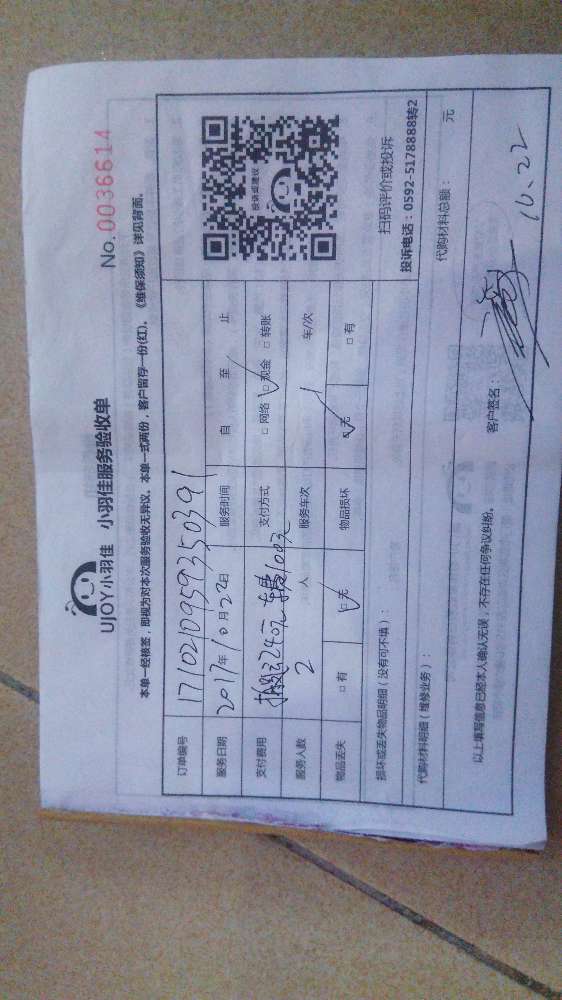 UJOY小羽佳 小羽佳服务验收单
No. 0036614
本单一经核签，即视为对本次服务验收无异议。本单一式两份，客户留存一份(红)。《维保须知》详见背面。
订单编号 1710210959350391
服务日期 2017年10月22日 服务时间 自 至 止
支付费用 搬运240元 车费100元 支付方式 □网络 □现金 □转账
服务人数 2 人 服务车次 1 车/次
物品丢失 □有 □无 物品损坏 □无 □有
投诉或建议
扫码评价或投诉
投诉电话：0592-5178888转2
损坏或丢失物品明细（没有可不填）：
代购材料明细（维修业务）：
代购材料总额： 元
以上填写信息已经本人确认无误，不存在任何争议纠纷。
客户签名： 10.22